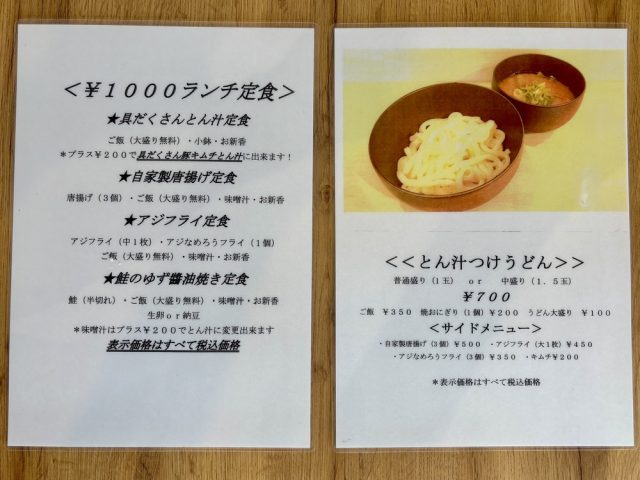 ＜￥１０００ランチ定食＞
★具だくさんとん汁定食
ご飯（大盛り無料）・小鉢・お新香
＊プラス￥２００で具だくさん豚キムチとん汁に出来ます！
★自家製唐揚げ定食
唐揚げ（３個）・ご飯（大盛り無料）・味噌汁・お新香
★アジフライ定食
アジフライ（中１枚）・アジなめろうフライ（１個）
ご飯（大盛り無料）・味噌汁・お新香
★鮭のゆず醬油焼き定食
鮭（半切れ）・ご飯（大盛り無料）・味噌汁・お新香
生卵ｏｒ納豆
＊味噌汁はプラス￥２００でとん汁に変更出来ます
表示価格はすべて税込価格
＜＜とん汁つけうどん＞＞
普通盛り（１玉） ｏｒ 中盛り（１．５玉）
￥７００
ご飯 ￥３５０ 焼おにぎり（１個）￥２００ うどん大盛り ￥１００
＜サイドメニュー＞
・自家製唐揚げ（３個）￥５００ ・アジフライ（大１枚）￥４５０
・アジなめろうフライ（３個）￥３５０ ・キムチ￥２００
＊表示価格はすべて税込価格